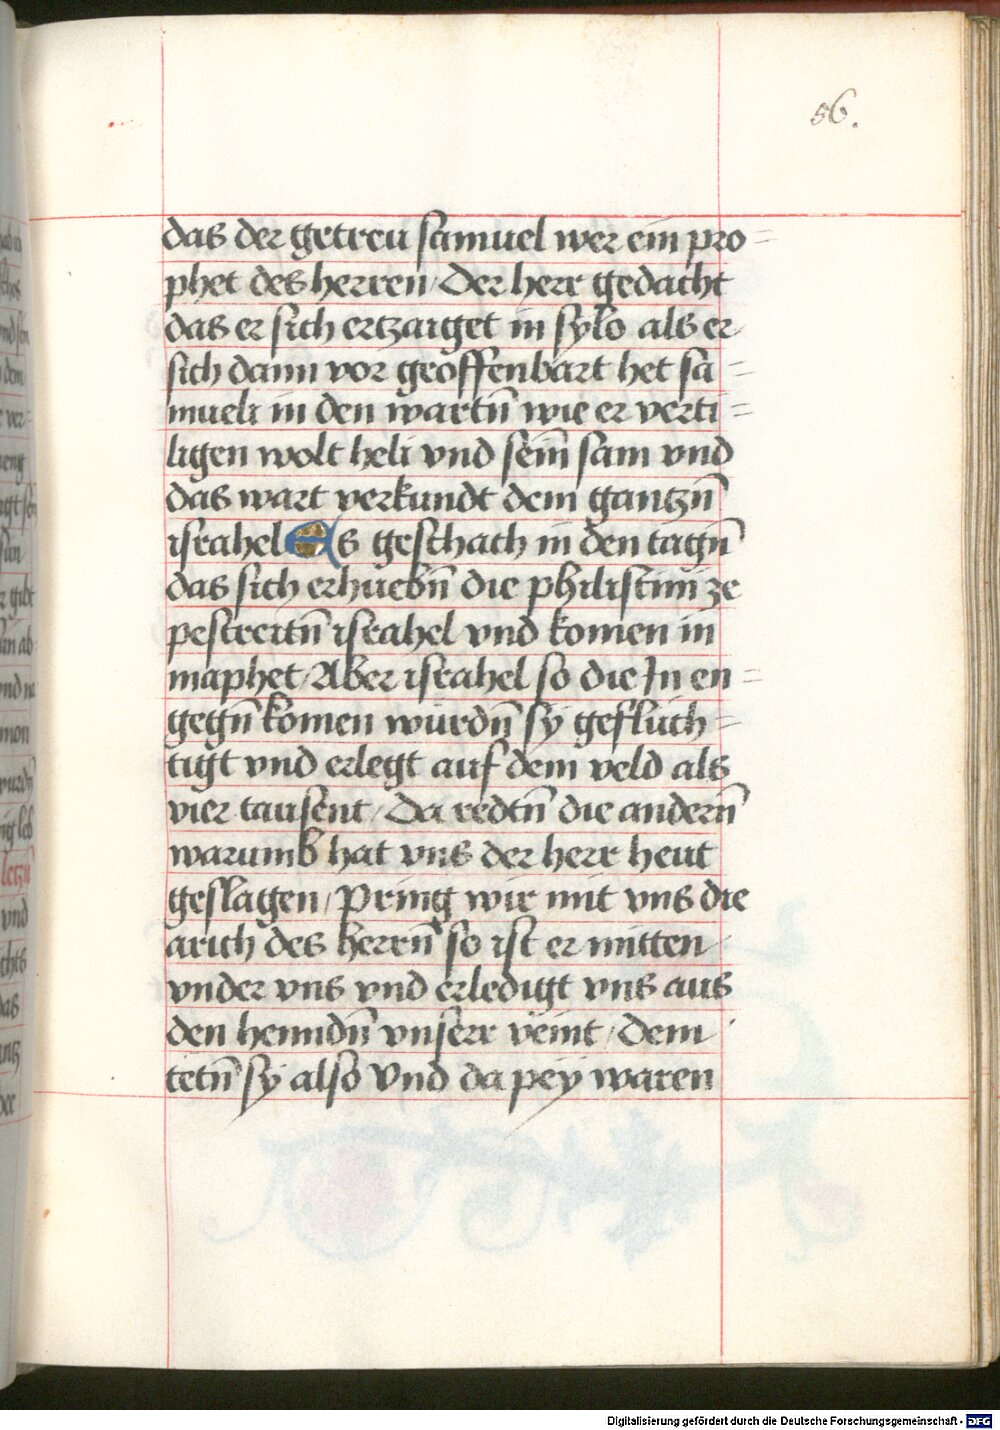 56.
das der getreu samuel wer ein pro=
phet des herren / Der herr gedacht
das er sich ertzaiget in sylo als er
sich dann vor geoffenbart het sa=
mueli in den wartn̄ wie er verti=
ligen wolt heli vnd sein̄ sam vnd
das wart verkundt dem gantzn̄
israhel Es geschach in den tagn̄
das sich erhuebn̄ die philistini ze
pestreitn̄ israhel vnd komen in
maphet / Aber israhel so die In en=
gegn̄ komen würdn̄ sy geflüch=
tigt vnd erlegt auf dem veld als
vier tausent / Da redtn̄ die andern̄
warumb hat vns der herr heut
geslagen / Pring wir mit vns die
arich des herrn̄ so ist er mitten
vnder vns vnd erledigt vns aus
den henndn̄ vnserr veint / dem
tetn̄ sy also Vnd da pey waren
Digitalisierung gefördert durch die Deutsche Forschungsgemeinschaft - DFG